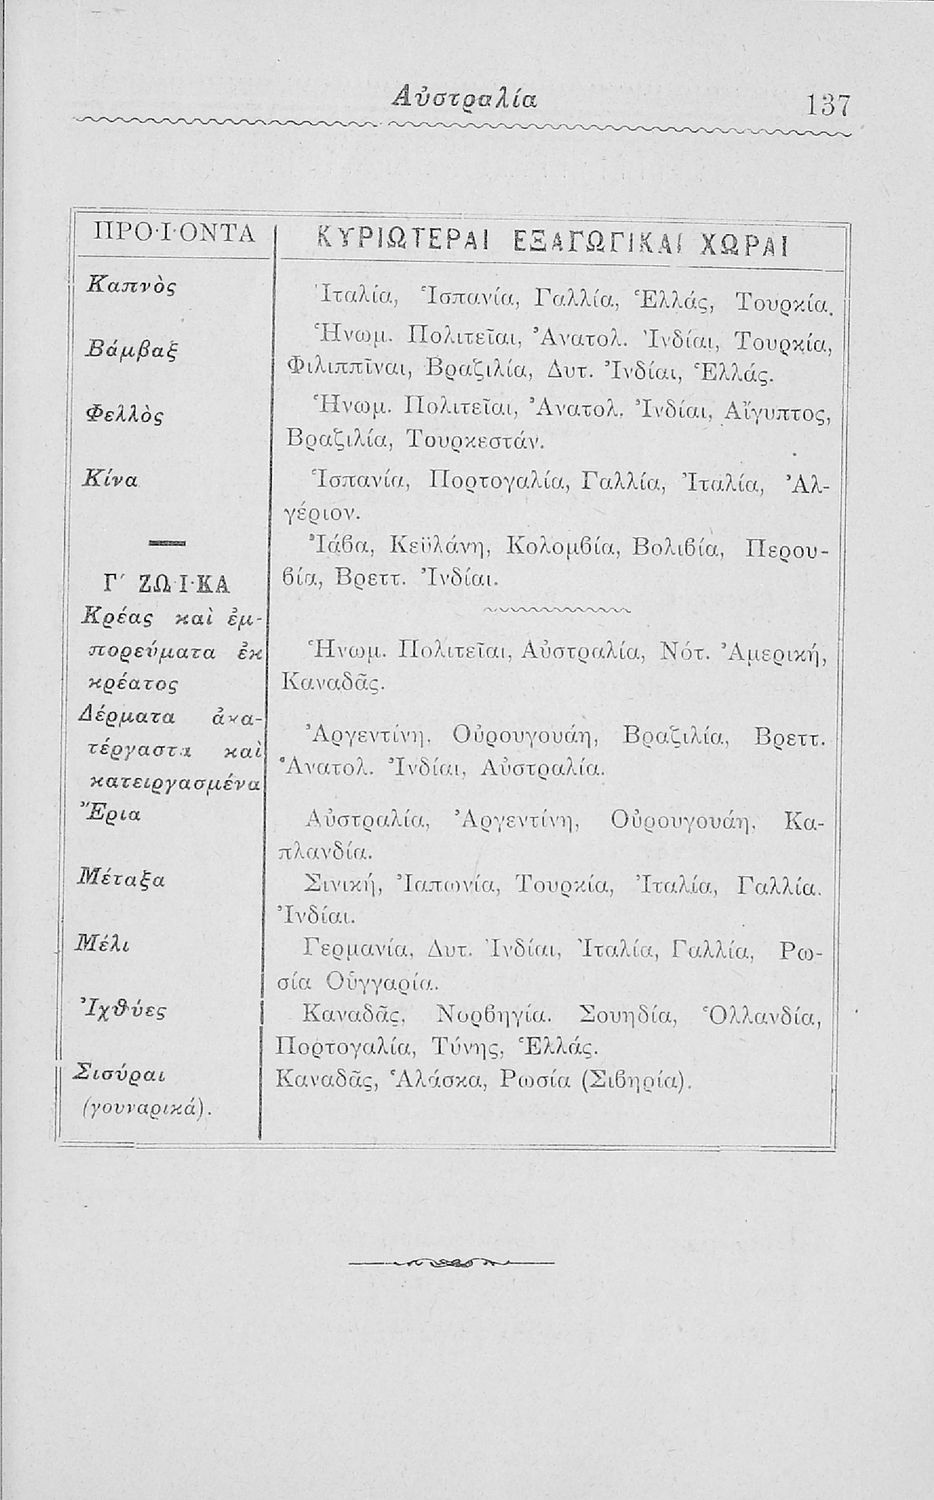 Αὐστραλία
137
ΠΡΟ·Ϊ·ΟΝΤΑ
ΚΥΡΙΩΤΕΡΑΙ ΕΞΑΓΩΓΙΚΑΙ ΧΩΡΑΙ
Καπνὸς
Ἰταλία, Ἱσπανία, Γαλλία, Ἑλλάς, Τουρκία.
Βάμβαξ
Ἡνωμ. Πολιτεῖαι, Ἀνατολ. Ἰνδίαι, Τουρκία,
Φιλιππῖναι, Βραζιλία, Δυτ. Ἰνδίαι, Ἑλλάς.
Φελλὸς
Ἡνωμ. Πολιτεῖαι, Ἀνατολ. Ἰνδίαι, Αἴγυπτος,
Βραζιλία, Τουρκεστάν.
Κίνα
Ἱσπανία, Πορτογαλία, Γαλλία, Ἰταλία, Ἀλ-
γέριον.
Ἰάβα, Κεϋλάνη, Κολομβία, Βολιβία, Περου-
βία, Βρεττ. Ἰνδίαι.
Γ΄ ΖΩ·Ι·ΚΑ
Κρέας καὶ ἐμ-
πορεύματα ἐκ
κρέατος
Ἡνωμ. Πολιτεῖαι, Αὐστραλία, Νότ. Ἀμερική,
Καναδᾶς.
Δέρματα ἀκα-
τέργαστα καὶ
κατειργασμένα
Ἀργεντίνη, Οὐρουγουάη, Βραζιλία, Βρεττ.
Ἀνατολ. Ἰνδίαι, Αὐστραλία.
Ἔρια
Αὐστραλία, Ἀργεντίνη, Οὐρουγουάη, Κα-
πλανδία.
Μέταξα
Σινική, Ἰαπωνία, Τουρκία, Ἰταλία, Γαλλία.
Ἰνδίαι.
Μέλι
Γερμανία, Δυτ. Ἰνδίαι, Ἰταλία, Γαλλία, Ρω-
σία Οὑγγαρία.
Ἰχθύες
Καναδᾶς, Νορβηγία. Σουηδία, Ὁλλανδία,
Πορτογαλία, Τύνης, Ἑλλάς.
Σισύραι
(γουναρικά).
Καναδᾶς, Ἀλάσκα, Ρωσία (Σιβηρία).